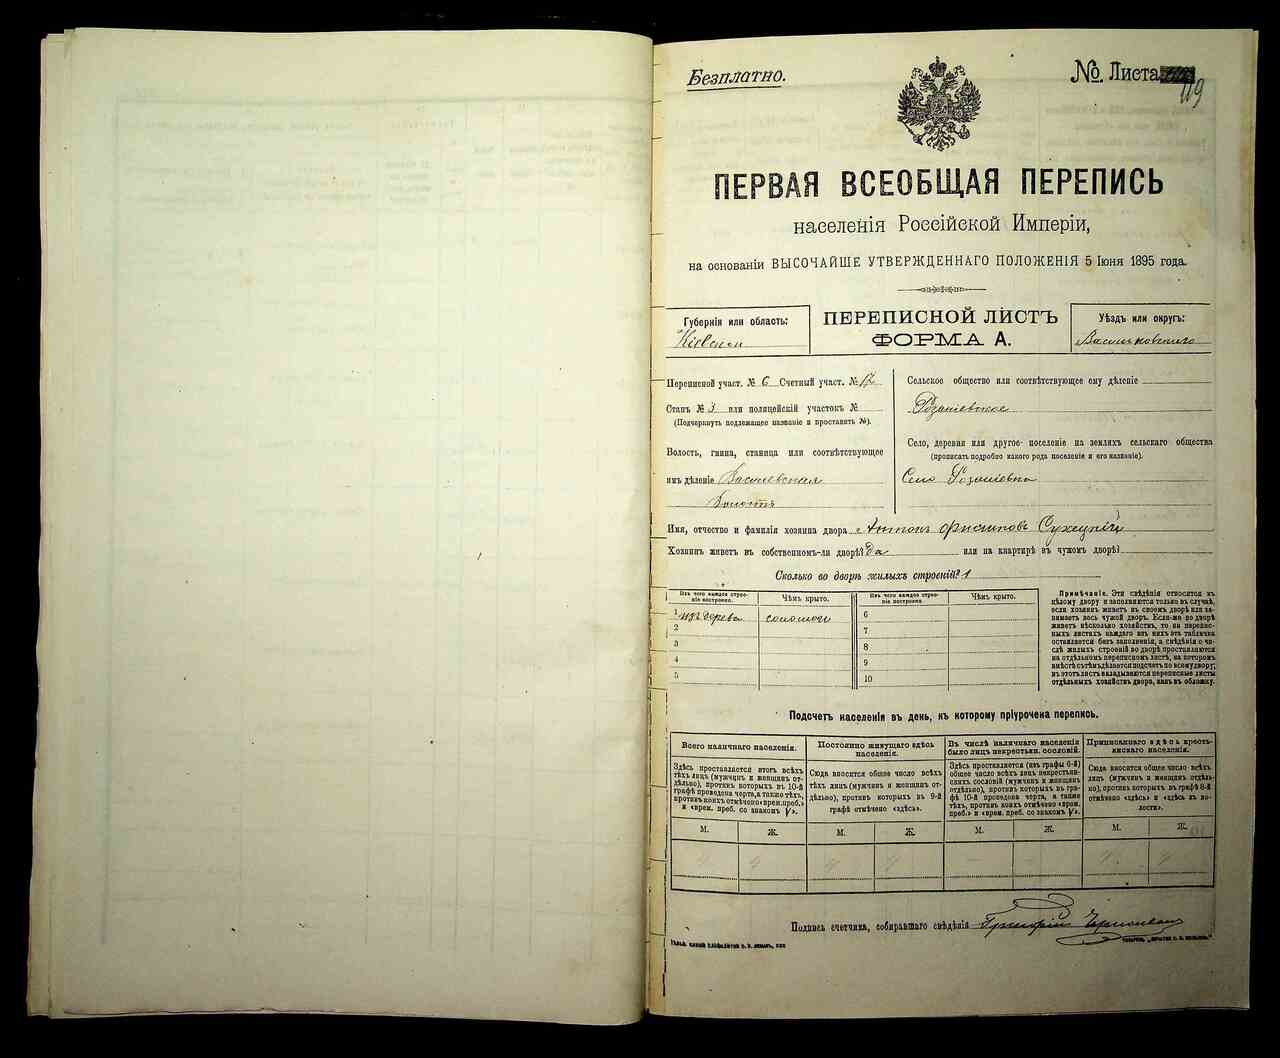 Безплатно.
№ Листа 119
ПЕРВАЯ ВСЕОБЩАЯ ПЕРЕПИСЬ
населенія Россійской Имперіи,
на основаніи ВЫСОЧАЙШЕ УТВЕРЖДЕННАГО ПОЛОЖЕНІЯ 5 Іюня 1895 года.
Губернія или область:
Кіевская
ПЕРЕПИСНОЙ ЛИСТЪ
ФОРМА А.
Уѣздъ или округъ:
Васильковскаго
Переписной участ. № 6 Счетный участ. № 12
Станъ № 3 или полицейскій участокъ №
(Подчеркнуть подлежащее названіе и проставить №).
Волость, гмина, станица или соотвѣтствующее
имъ дѣленіе
Волость
Сельское общество или соотвѣтствующее ему дѣленіе
Село, деревня или другое поселеніе на земляхъ сельскаго общества
(прописать подробно какого рода поселеніе и его названіе).
Село
Имя, отчество и фамилія хозяина двора Антонъ Филиповъ Сухецкій
Хозяинъ живетъ въ собственномъ-ли дворѣ? да или на квартирѣ въ чужомъ дворѣ?
Сколько во дворѣ жилыхъ строеній? 1
Изъ чего каждое строеніе построено.
Чѣмъ крыто.
Изъ чего каждое строеніе построено.
Чѣмъ крыто.
1 изъ дерева соломою
2
3
4
5
6
7
8
9
10
Примѣчаніе. Эти свѣдѣнія относятся къ
цѣлому двору и заполняются только въ случаѣ,
если хозяинъ живетъ въ своемъ дворѣ или за-
нимаетъ весь чужой дворъ. Если-же во дворѣ
живетъ нѣсколько хозяйствъ, то на перепис-
ныхъ листахъ каждаго изъ нихъ эта табличка
оставляется безъ заполненія, а свѣдѣнія о чи-
слѣ жилыхъ строеній во дворѣ проставляются
на отдѣльномъ переписномъ листѣ, на которомъ
вмѣстѣ съ тѣмъ дѣлается подсчетъ по всему двору;
въ этотъ листъ вкладываются переписные листы
отдѣльныхъ хозяйствъ двора, какъ въ обложку.
Подсчетъ населенія въ день, къ которому пріурочена перепись.
Всего наличнаго населенія.
Здѣсь проставляется итогъ всѣхъ
тѣхъ лицъ (мужчинъ и женщинъ от-
дѣльно), противъ которыхъ въ 10-й
графѣ проведена черта, а также тѣхъ,
противъ коихъ отмѣчено «врем. преб.»
и «врем. преб. со знакомъ V».
Постоянно живущаго здѣсь
населенія.
Сюда вносится общее число всѣхъ
тѣхъ лицъ (мужчинъ и женщинъ от-
дѣльно), противъ которыхъ въ 9-й
графѣ отмѣчено «здѣсь».
Въ числѣ наличнаго населенія
было лицъ некрестьян. сословій.
Здѣсь проставляется (изъ графы 6-й)
общее число всѣхъ лицъ некрестьян-
скихъ сословій (мужчинъ и женщинъ
отдѣльно), противъ которыхъ въ
графѣ 10-й проведена черта, а также
тѣхъ, противъ коихъ отмѣчено «врем.
преб.» и «врем. преб. со знакомъ V».
Приписаннаго здѣсь кресть-
янскаго населенія.
Сюда вносится общее число всѣхъ
лицъ (мужчинъ и женщинъ отдѣль-
но), противъ которыхъ въ графѣ 8-й
отмѣчено «здѣсь» и «здѣсь въ во-
лости».
М. Ж. М. Ж. М. Ж. М. Ж.
4 4 4 4 – – 4 4
Подпись счетчика, собиравшаго свѣдѣнія Григорій